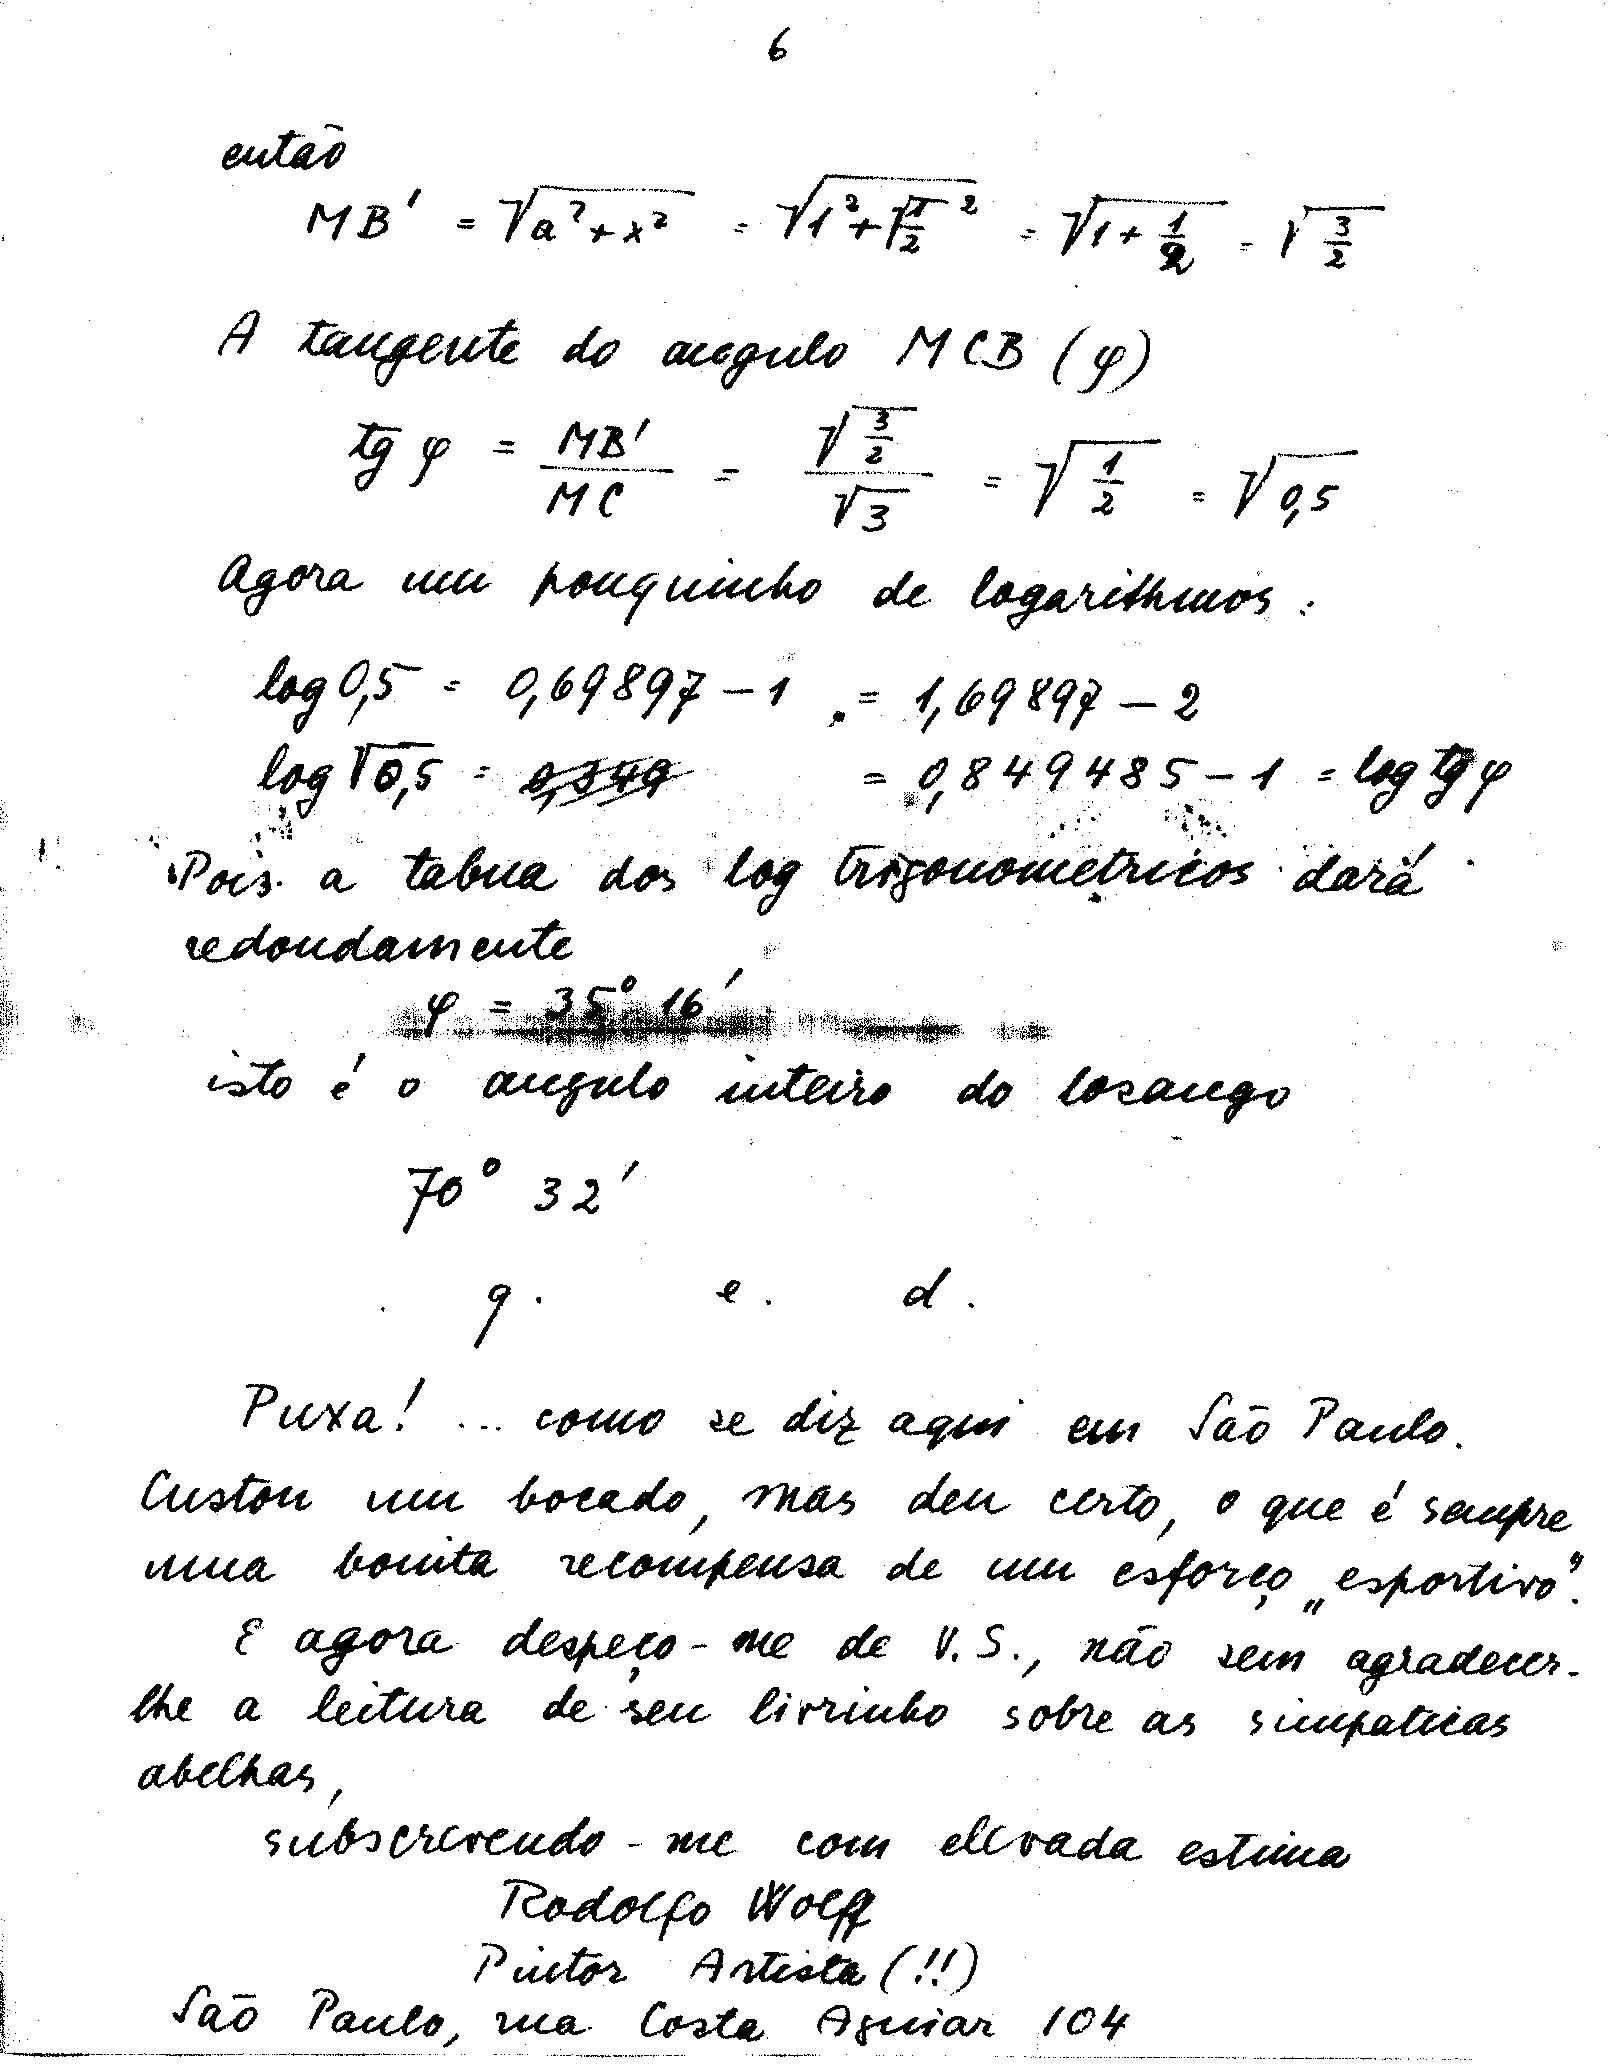 6
então
MB' = √a²+x² = √1²+√1/2² = √1+1/2 = √3/2
A tangente do angulo MCB (φ)
tg φ = MB'/MC = √3/2/√3 = √1/2 = √0,5
Agora um pouquinho de logarithmos:
log 0,5 = 0,69897 – 1 = 1,69897 – 2
log √0,5 = = 0,849485 – 1 = log tg φ
Pois a tabua dos log trigonometricos dará
redondamente
φ = 35° 16'
isto é o angulo inteiro do losango
70° 32'
q. e. d.
Puxa! ... como se diz aqui em São Paulo.
Custou um bocado, mas deu certo, o que é sempre
uma bonita recompensa de um esforço „esportivo".
E agora despeço-me de V.S., não sem agradecer-
lhe a leitura de seu livrinho sobre as simpaticas
abelhas,
subscrevendo-me com elevada estima
Rodolfo Wolff
Pintor Artista (!!)
São Paulo, rua Costa Aguiar 104